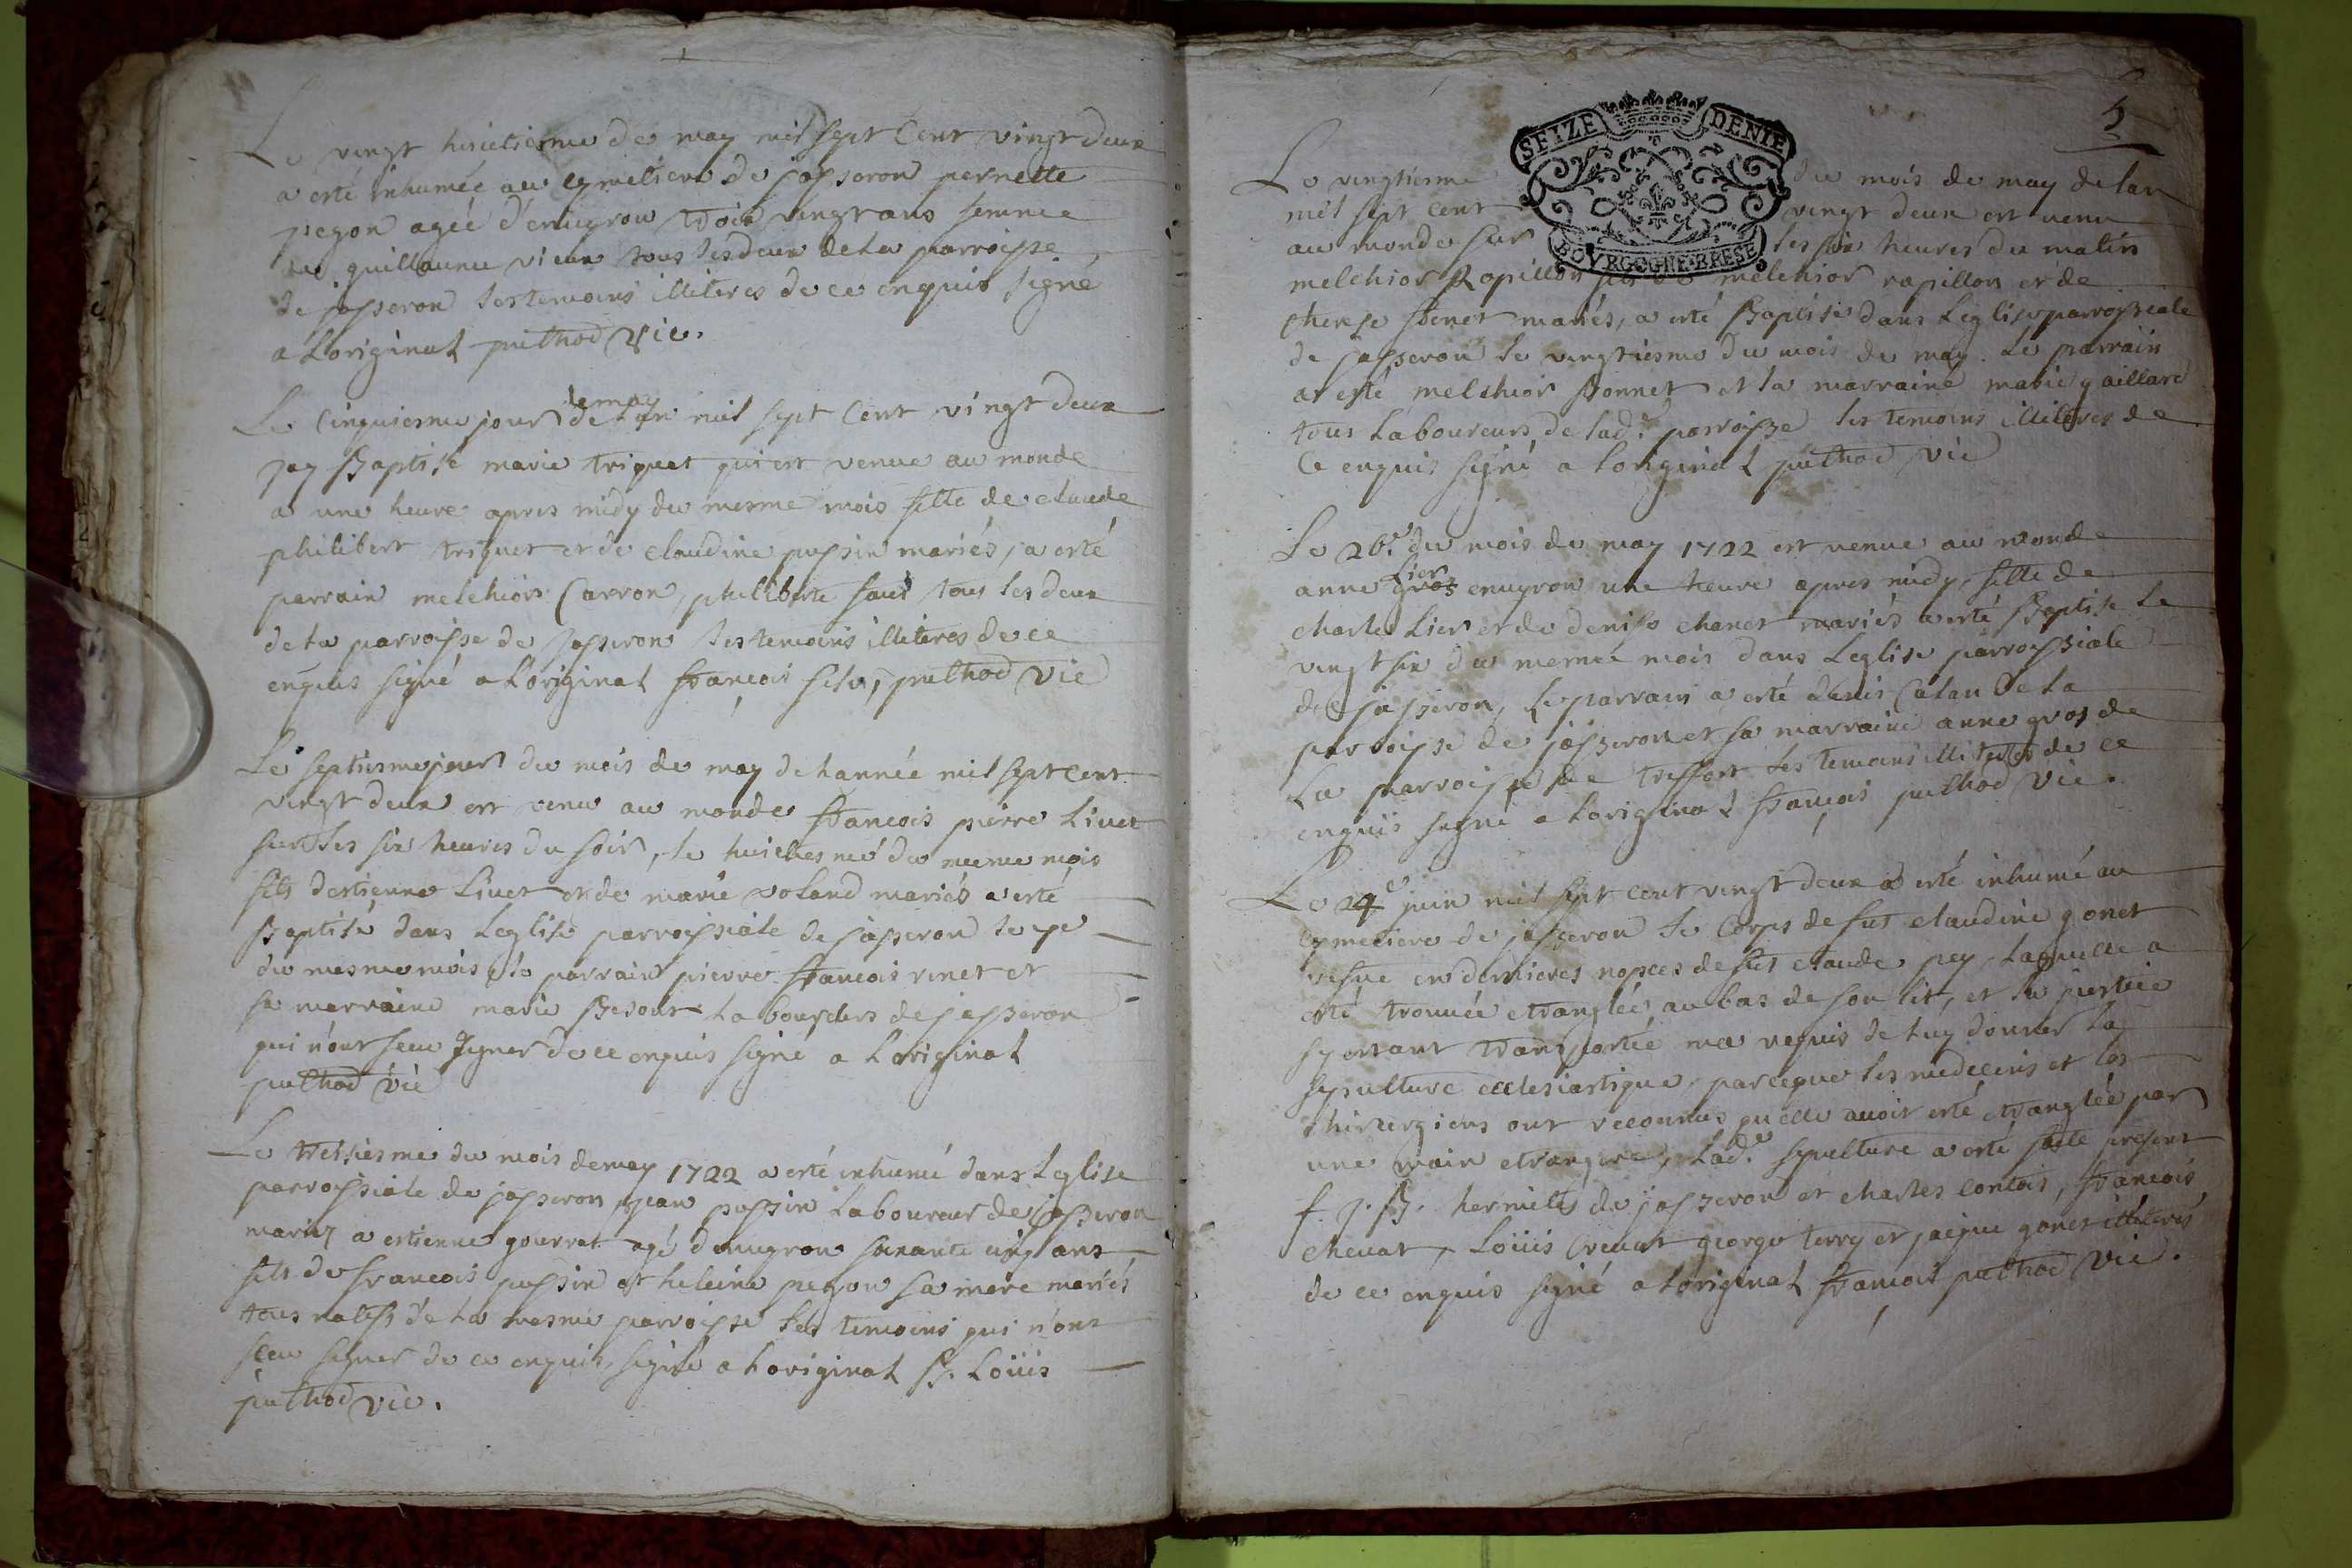 Le vingt huictiesme de may mil sept Cent vingt deux
a esté inhumée au cymetiere de jasseron pernette
pegon agée d'enuyron trois vingt ans femme
de guillaume vieux tous les deux de la parroisse
de jasseron les temoins illiteres de ce enquis signé
a Loriginal puthod vic.
Le Cinquiesme jour de may mil sept Cent vingt deux
jay Baptisé marie triquet qui est venue au monde
a une heure apres midy du mesme mois fille de claude
philibert triquet et de claudine pussin mariés, a esté
parrain melchior Carron, philiberte tous les deux
de la parroisse de jasseron les temoins illiteres de ce
enquis signé a Loriginal françois puthod vic
Le septiesme jour du mois de may de Lannée mil sept cent
vingt deux est venu au monde françois pierre Liuet
sur les six heures du soir, le huictiesme du mesme mois
fils d'estienne Liuet et de marie voland mariés a esté
Baptisé dans Leglise parroissiale de jasseron le
du mesme mois le parrain pierre françois vinet et
sa marraine marie Laboureurs de jasseron
qui n'ont sceu signer de ce enquis signé a Loriginal
puthod vic
Le treiziesme du mois de may 1722 a esté inhumé dans Leglise
parroissiale de jasseron jean pussin Laboureur de jasseron
mariez a estienne gourrat agé d'enuyron soixante cinq ans
fils de françois pussin et heleine pegon sa mere mariés
tous natifs de La mesme parroisse les temoins qui n'ont
sceu signer de ce enquis, signé a Loriginal B. Loüis
puthod vic.
5
SEIZE DENIE
BOVRGOGNE·BRESE
Le vingtiesme du mois de may de lan
mil sept cent vingt deux est venu
au monde sur les six heures du matin
melchior Rapillon fils de melchior rapillon et de
therese mariés, a esté Baptisé dans Leglise parroissiale
de jasseron le vingtiesme du mois de may. Le parrain
a esté melchior Bonnet et la marraine marie gaillard
tous Laboureurs de lad.e parroisse les temoins illiteres de
Ce enquis signé a Loriginal puthod vic
Le 26.e du mois de may 1722 est venue au monde
anne Lier enuyron une heure apres midy, fille de
charle Lier et de denise chanet mariés a esté Baptisé Le
vingt six du mesme mois dans Leglise parroissiale
de jasseron, Le parrain a esté denis Catan de La
parroisse de jasseron et sa marraine anne gros de
La parroisse de treffort les temoins illiteres de ce
enquis signé a Loriginal françois puthod vic.
Le 24e juin mil sept cent vingt deux a esté inhumé au
cymetiere de jasseron le Corps de fut claudine gonet
vefue en dernieres nopces de fut claude pey, Laquelle a
esté trouuée etranglée au bas de son lit, et la justice
sy estant transportée ma requis de Luy donner La
sepulture ecclesiastique, parceque les medecins et les
chirurgiens ont reconnus quelle auoit esté etranglée par
une main etrangere, Lad.e sepulture a esté faite present
f. j. B. hermite de jasseron et charles contois, françois
cheuat, Loüis Creuat george terry et jaque gonet illiteres
de ce enquis signé a Loriginal françois puthod vic.